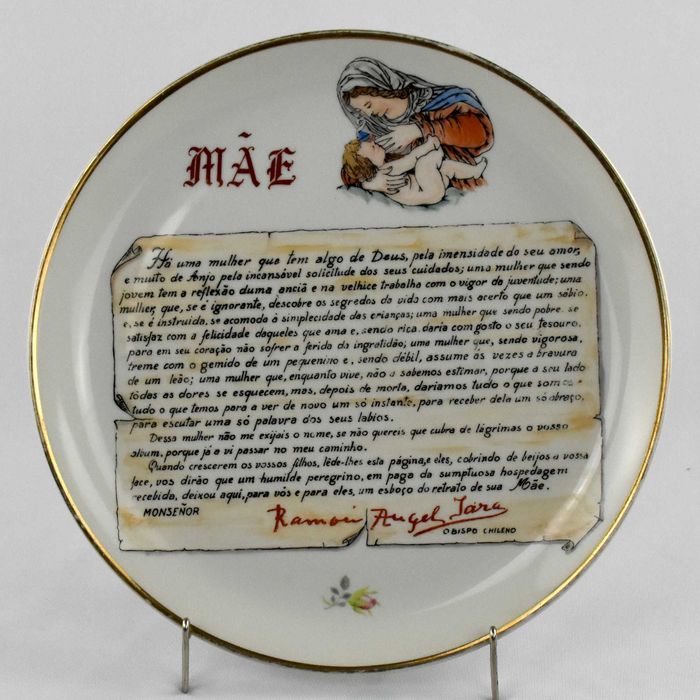 MÃE
Há uma mulher que tem algo de Deus, pela imensidade do seu amor,
e muito de Anjo pela incansável solicitude dos seus cuidados; uma mulher que sendo
jovem tem a reflexão duma anciã e na velhice trabalha com o vigor da juventude; uma
mulher, que, se é ignorante, descobre os segredos da vida com mais acerto que um sábio,
e, se é instruida, se acomoda à simplecidade das crianças; uma mulher que sendo pobre, se
satisfaz com a felicidade daqueles que ama e, sendo rica, daria com gosto o seu tesouro,
para em seu coração não sofrer a ferida da ingratidão; uma mulher que, sendo vigorosa,
treme com o gemido de um pequenino e, sendo débil, assume às vezes a bravura
de um leão; uma mulher que, enquanto vive, não a sabemos estimar, porque a seu lado
todas as dores se esquecem, mas, depois de morta, dariamos tudo o que somos e
tudo o que temos para a ver de novo um só instante, para receber dela um só abraço,
para escutar uma só palavra dos seus labios.
Dessa mulher não me exijais o nome, se não quereis que cubra de lágrimas o vosso
album, porque já a vi passar no meu caminho.
Quando crescerem os vossos filhos, lêde-lhes esta página, e eles, cobrindo de beijos a vossa
face, vos dirão que um humilde peregrino, em paga da sumptuosa hospedagem
recebida, deixou aqui, para vós e para eles, um esboço do retrato de sua Mãe.
MONSEÑOR
Ramon Angel Jara
OBISPO CHILENO